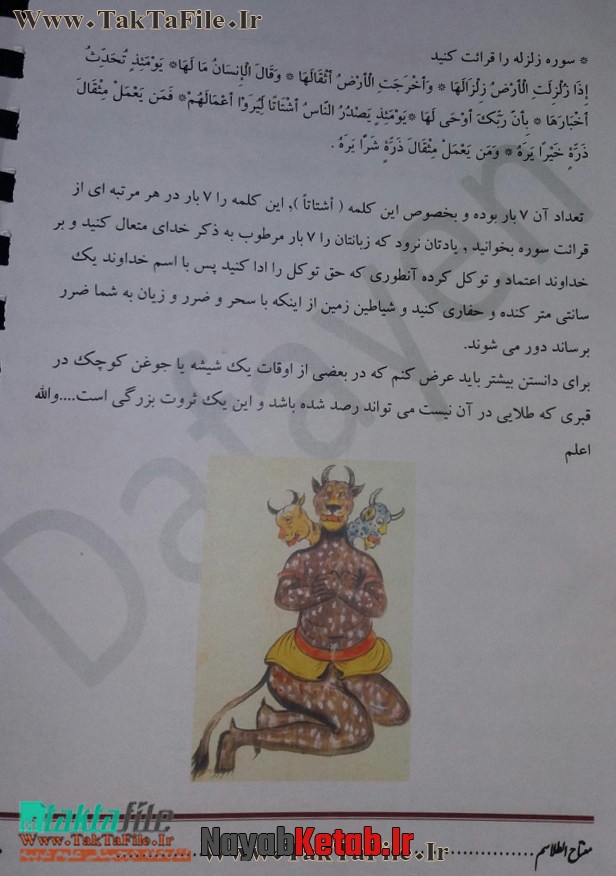 www.TakTaFile.Ir
* سوره زلزله را قرائت کنید
إِذَا زُلْزِلَتِ الْأَرْضُ زِلْزَالَهَا * وَأَخْرَجَتِ الْأَرْضُ أَثْقَالَهَا * وَقَالَ الْإِنسَانُ مَا لَهَا* يَوْمَئِذٍ تُحَدِّثُ
أَخْبَارَهَا * بِأَنَّ رَبَّكَ أَوْحَى لَهَا *يَوْمَئِذٍ يَصْدُرُ النَّاسُ أَشْتَاتًا لِّيُرَوْا أَعْمَالَهُمْ* فَمَن يَعْمَلْ مِثْقَالَ
ذَرَّةٍ خَيْرًا يَرَهُ * وَمَن يَعْمَلْ مِثْقَالَ ذَرَّةٍ شَرًّا يَرَهُ .
تعداد آن ۷ بار بوده و بخصوص این کلمه ( أشتاتاً ), این کلمه را ۷ بار در هر مرتبه ای از
قرائت سوره بخوانید , یادتان نرود که زبانتان را ۷ بار مرطوب به ذکر خدای متعال کنید و بر
خداوند اعتماد و توکل کرده آنطوری که حق توکل را ادا کنید پس با اسم خداوند یک
سانتی متر کنده و حفاری کنید و شیاطین زمین از اینکه با سحر و ضرر و زیان به شما ضرر
برساند دور می شوند.
برای دانستن بیشتر باید عرض کنم که در بعضی از اوقات یک شیشه یا جوغن کوچک در
قبری که طلایی در آن نیست می تواند رصد شده باشد و این یک ثروت بزرگی است....والله
اعلم
Dafayen
taktafile
www.TakTaFile.Ir
NayabKetab.Ir
www.TakTaFile.Ir
مفتاح الطلاسم